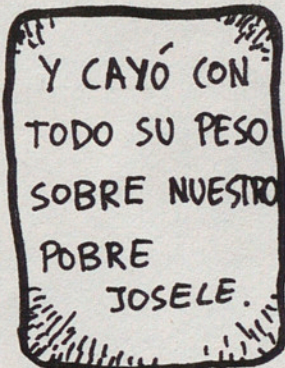 Y CAYÓ CON
TODO SU PESO
SOBRE NUESTRO
POBRE
JOSELE.